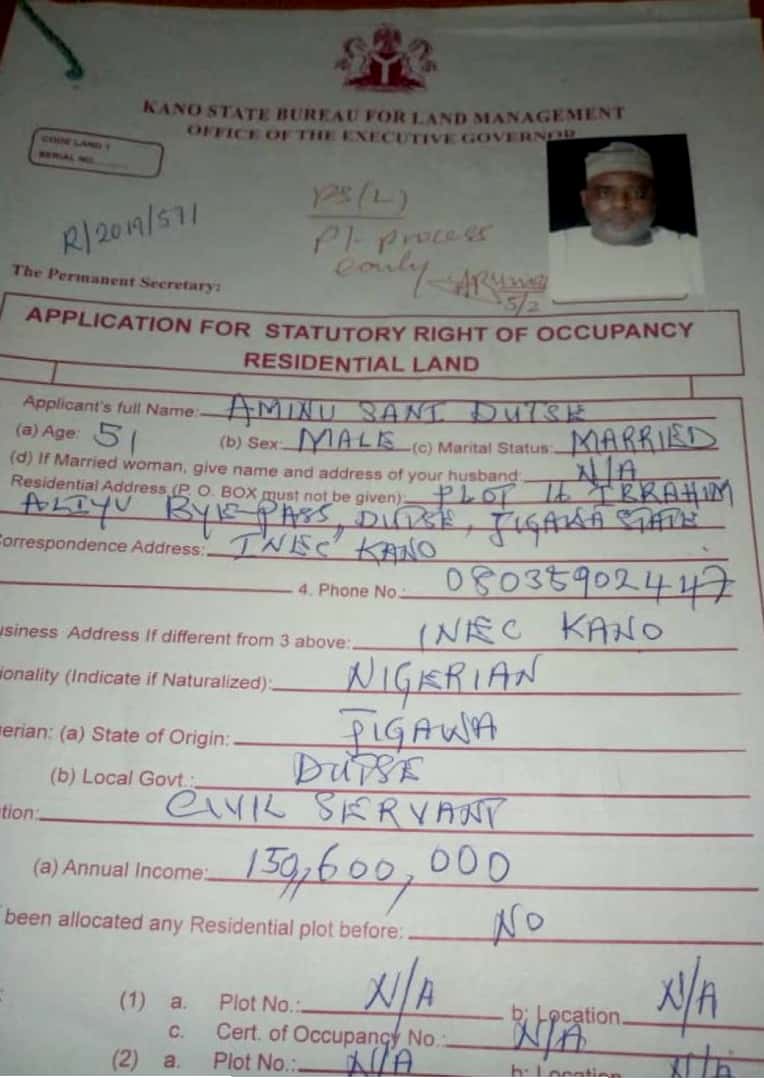 KANO STATE BUREAU FOR LAND MANAGEMENT
OFFICE OF THE EXECUTIVE GOVERNOR
CODE LAND 1
SERIAL NO.
R/2019/571
PS(L)
Pl- process
The Permanent Secretary:
5/2
APPLICATION FOR STATUTORY RIGHT OF OCCUPANCY
RESIDENTIAL LAND
Applicant's full Name: AMINU SANI DUTSE
(a) Age: 51 (b) Sex: MALE (c) Marital Status: MARRIED
(d) If Married woman, give name and address of your husband: N/A
Residential Address (P. O. BOX must not be given): PLOT 16 IBRAHIM
ALIYU BYE-PASS, DUTSE, JIGAWA STATE
Correspondence Address: INEC KANO
4. Phone No.: 08035902447
usiness Address If different from 3 above: INEC KANO
ionality (Indicate if Naturalized): NIGERIAN
gerian: (a) State of Origin: JIGAWA
(b) Local Govt.: DUTSE
tion: CIVIL SERVANT
(a) Annual Income: 150,600,000
been allocated any Residential plot before: NO
(1) a. Plot No.: N/A b: Location N/A
c. Cert. of Occupancy No.: N/A
(2) a. Plot No.: N/A b: Location N/A